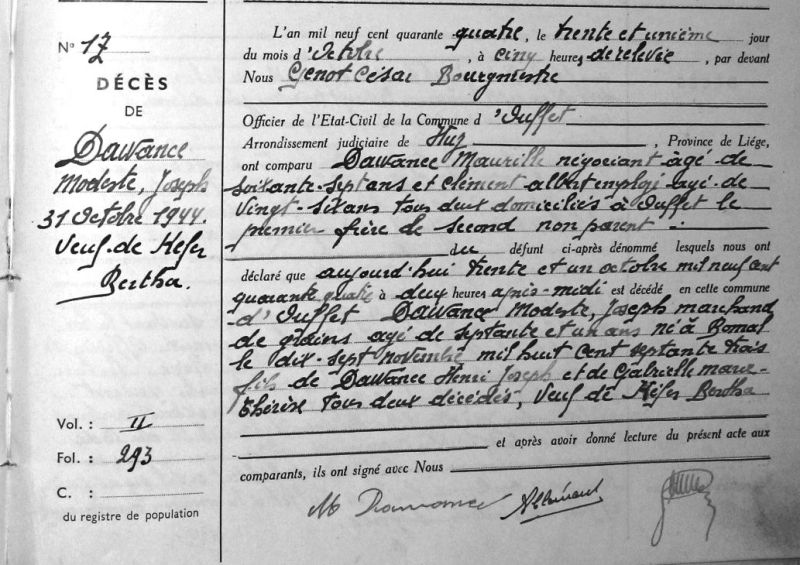 N° 17
DÉCÈS
DE
Dawance
Modeste, Joseph
31 Octobre 1944.
Veuf de Kefer
Bertha.
Vol. : II
Fol. : 293
C. :
du registre de population
L'an mil neuf cent quarante quatre, le trente et unième jour
du mois d'Octobre, à cinq heures de relevée, par devant
Nous Genot César Bourgmestre
Officier de l'Etat-Civil de la Commune d'Ouffet
Arrondissement judiciaire de Huy, Province de Liége,
ont comparu Dawance Maurille négociant âgé de
soixante-sept ans et Clément Albert employé âgé de
vingt-six ans tous deux domiciliés à Ouffet le
premier frère le second non parent -
du défunt ci-après dénommé lesquels nous ont
déclaré que aujourd'hui trente et un octobre mil neuf cent
quarante quatre à deux heures après-midi est décédé en cette commune
d'Ouffet Dawance Modeste, Joseph marchand
de grains âgé de septante et un ans né à Bomal
le dix-sept novembre mil huit cent septante trois
fils de Dawance Henri Joseph et de Gabrielle Marie-
Thérèse tous deux décédés, veuf de Kéfer Bertha
et après avoir donné lecture du présent acte aux
comparants, ils ont signé avec Nous
M Dawance